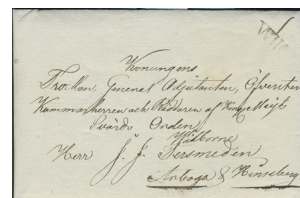 Konungens
Troman, General Adjutanten, Öfversten
Kammarherren och Riddaren af Kongl Maj:ts
Svärds Orden
Wälborne
Herr J. J. Tersmeden
Arboga & Hinseberg